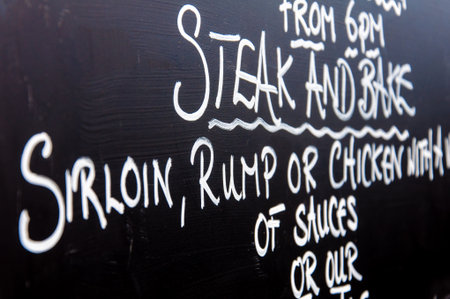 FROM 6PM
STEAK AND BAKE
SIRLOIN, RUMP OR CHICKEN WITH A
OF SAUCES
OR OUR